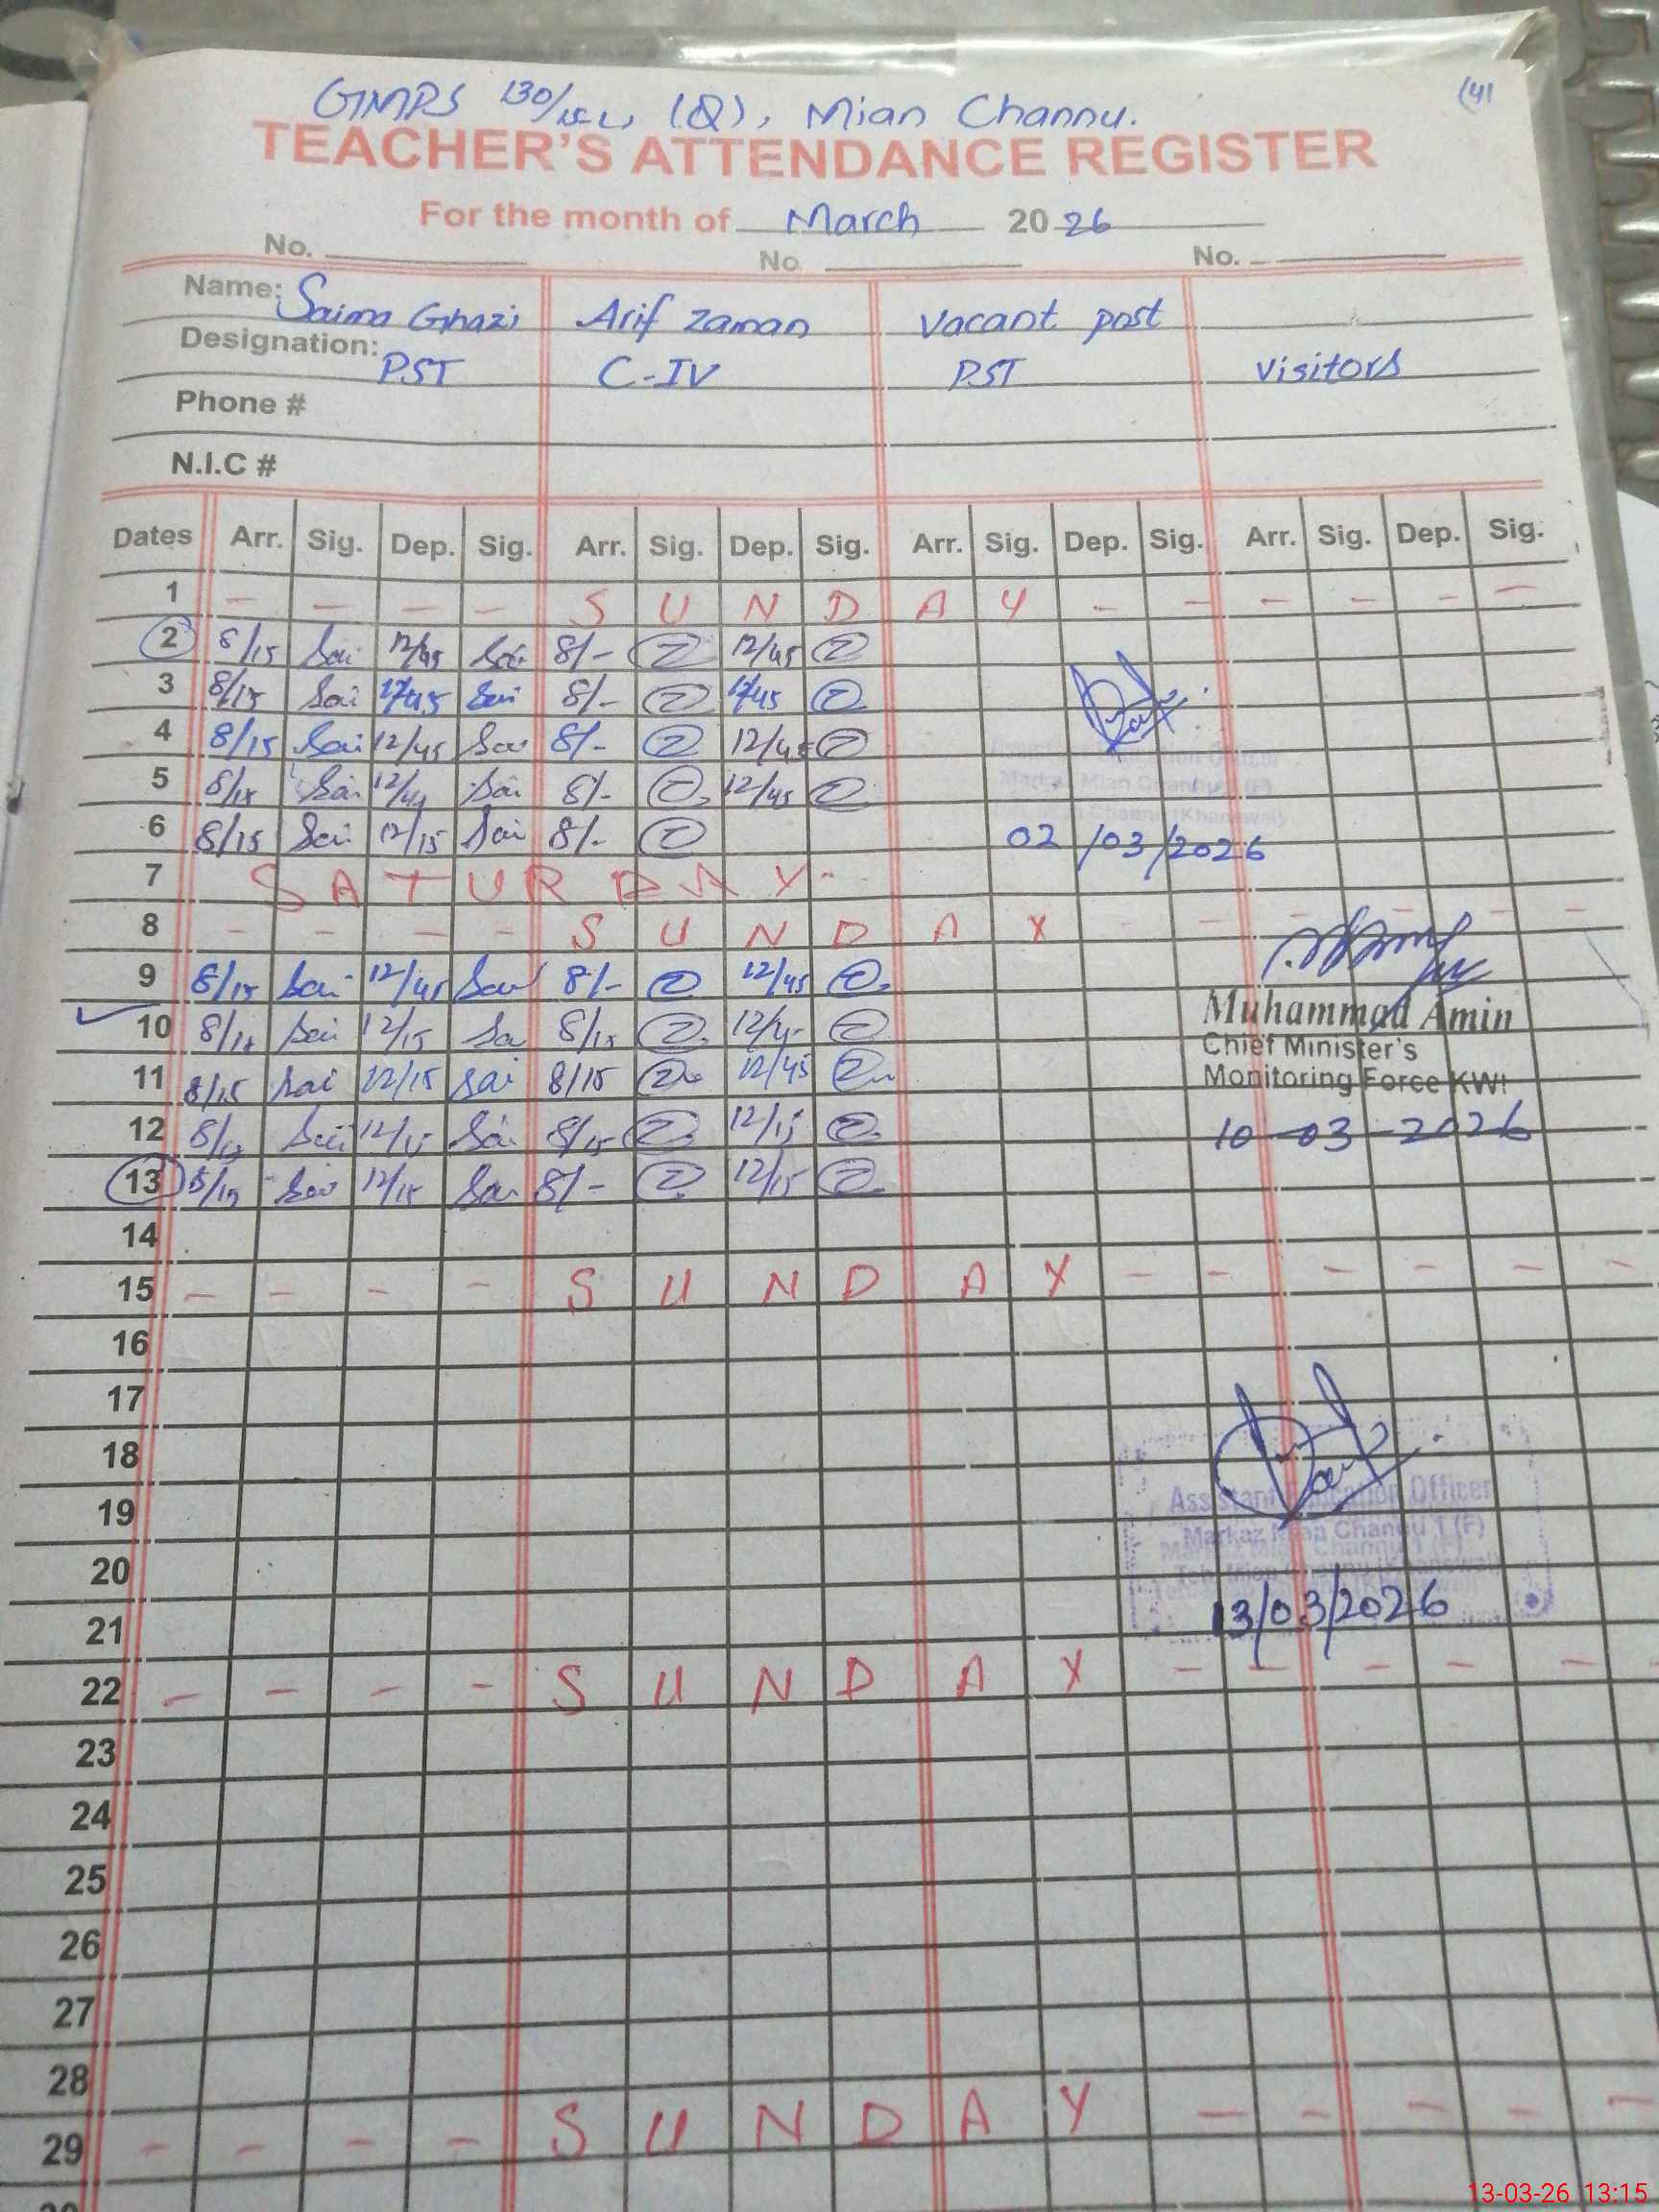 GMPS 130/15-L, (Q), Mian Channu.
(41
TEACHER'S ATTENDANCE REGISTER
For the month of March 2026
No. No No.
Name: Saima Ghazi Arif Zaman Vacant post
Designation: PST C-IV PST Visitors
Phone #
N.I.C #
Dates Arr. Sig. Dep. Sig. Arr. Sig. Dep. Sig. Arr. Sig. Dep. Sig. Arr. Sig. Dep. Sig.
1 - - - - S U N D A Y - - - - - -
2 8/15 Sai 12/45 Sai 8/- 12/45
3 8/15 Sai 12/45 Sai 8/- 12/45
4 8/15 Sai 12/45 Sai 8/- 12/45
5 8/15 Sai 12/45 Sai 8/- 12/45
6 8/15 Sai 12/15 Sai 8/- 02/03/2026
7 S A T U R D A Y -
8 - - - - S U N D A Y - - - - - -
9 8/15 Sai 12/45 Sai 8/- 12/45
Muhammad Amin
10 8/15 Sai 12/15 Sai 8/15
Chief Minister's
11 8/15 Sai 12/15 Sai 8/15 12/45
Monitoring Force KWl
12 8/15 Sai 12/15 Sai 8/15 12/15
10-03-2026
13 8/15 Sai 12/15 Sai 8/- 12/15
14
15 - - - - S U N D A Y - - - - - -
16
17
18
Assistant Education Officer
19
Markaz Mian Channu 1 (F)
20
13/03/2026
21
22 - - - - S U N D A Y - - - - - -
23
24
25
26
27
28
29 - - - - S U N D A Y - - - - -
13-03-26 13:15